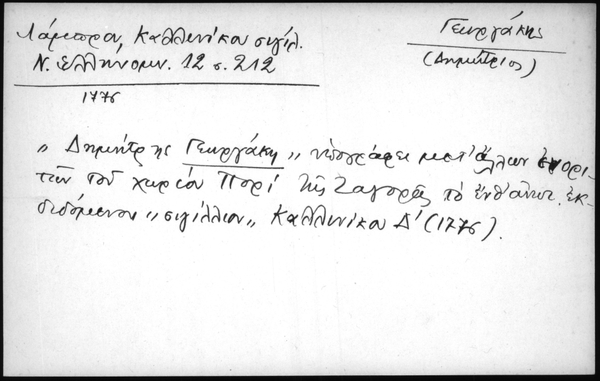 Λάμπρου, Καλλινίκου σιγίλ.
Ν. Ελληνομν. 12 σ. 212
1776
Γεωργάκης
(Δημήτριος)
„ Δημήτρης Γεωργάκη „ υπογράφει μετ' άλλων ενορι-
τών του χωρίου Πορί της Ζαγοράς το ενθ' ανωτ. εκ-
διδόμενον „ σιγίλλιον „ Καλλινίκου Δ' (1776).